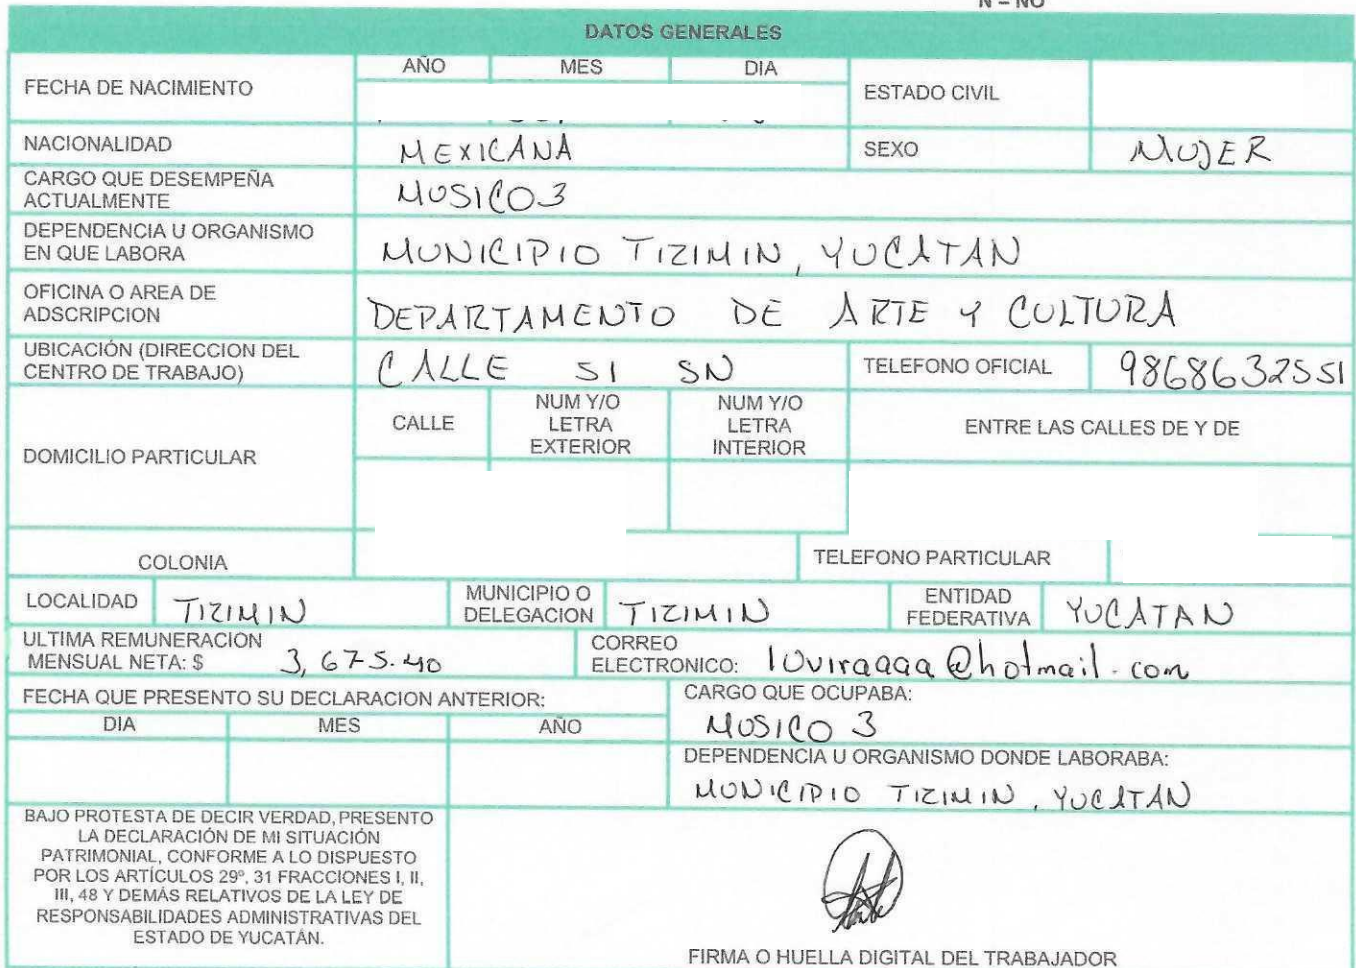 N = NO
DATOS GENERALES
FECHA DE NACIMIENTO AÑO MES DIA ESTADO CIVIL
NACIONALIDAD MEXICANA SEXO MUJER
CARGO QUE DESEMPEÑA
ACTUALMENTE MUSICO 3
DEPENDENCIA U ORGANISMO
EN QUE LABORA MUNICIPIO TIZIMIN, YUCATAN
OFICINA O AREA DE
ADSCRIPCION DEPARTAMENTO DE ARTE Y CULTURA
UBICACIÓN (DIRECCION DEL
CENTRO DE TRABAJO) CALLE 51 SN TELEFONO OFICIAL 9868632551
DOMICILIO PARTICULAR
CALLE
NUM Y/O
LETRA
EXTERIOR
NUM Y/O
LETRA
INTERIOR
ENTRE LAS CALLES DE Y DE
COLONIA TELEFONO PARTICULAR
LOCALIDAD TIZIMIN MUNICIPIO O
DELEGACION TIZIMIN ENTIDAD
FEDERATIVA YUCATAN
ULTIMA REMUNERACION
MENSUAL NETA: $ 3,675.40
CORREO
ELECTRONICO: 10viraaaa@hotmail.com
FECHA QUE PRESENTO SU DECLARACION ANTERIOR:
DIA MES AÑO
CARGO QUE OCUPABA:
MUSICO 3
DEPENDENCIA U ORGANISMO DONDE LABORABA:
MUNICIPIO TIZIMIN, YUCATAN
BAJO PROTESTA DE DECIR VERDAD, PRESENTO
LA DECLARACIÓN DE MI SITUACIÓN
PATRIMONIAL, CONFORME A LO DISPUESTO
POR LOS ARTÍCULOS 29º, 31 FRACCIONES I, II,
III, 48 Y DEMÁS RELATIVOS DE LA LEY DE
RESPONSABILIDADES ADMINISTRATIVAS DEL
ESTADO DE YUCATÁN.
FIRMA O HUELLA DIGITAL DEL TRABAJADOR